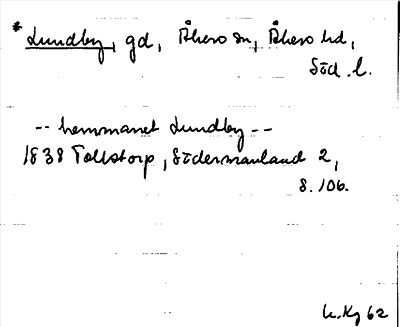 * Lundby, gd, Åkers sn, Åkers hd,
Söd. l.
-- hemmanet Lundby --
1838 Tollstorp, Södermanland 2,
s. 106.
K.Kg 62